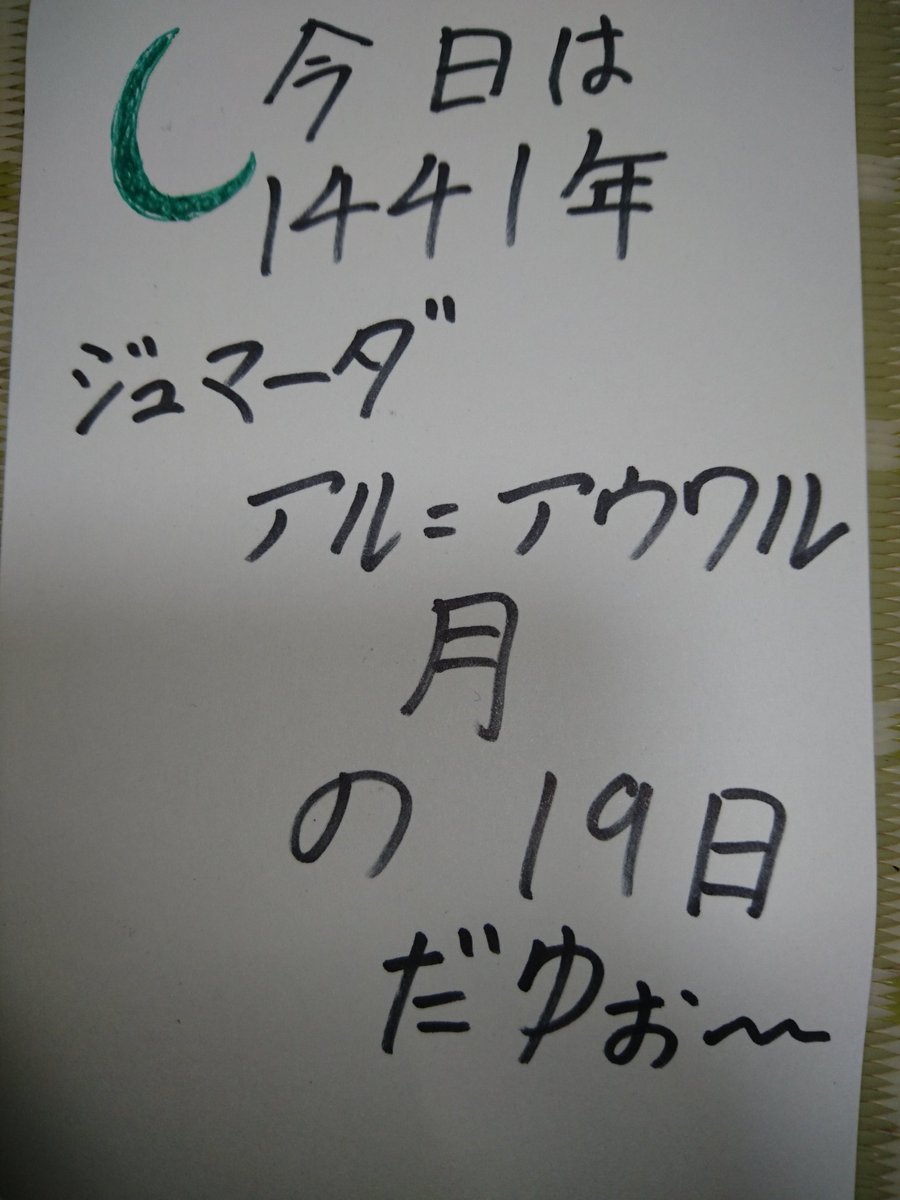 今日は
1441年
ジュマーダ
アル=アウワル
月
の 19日
だゆぉ〜